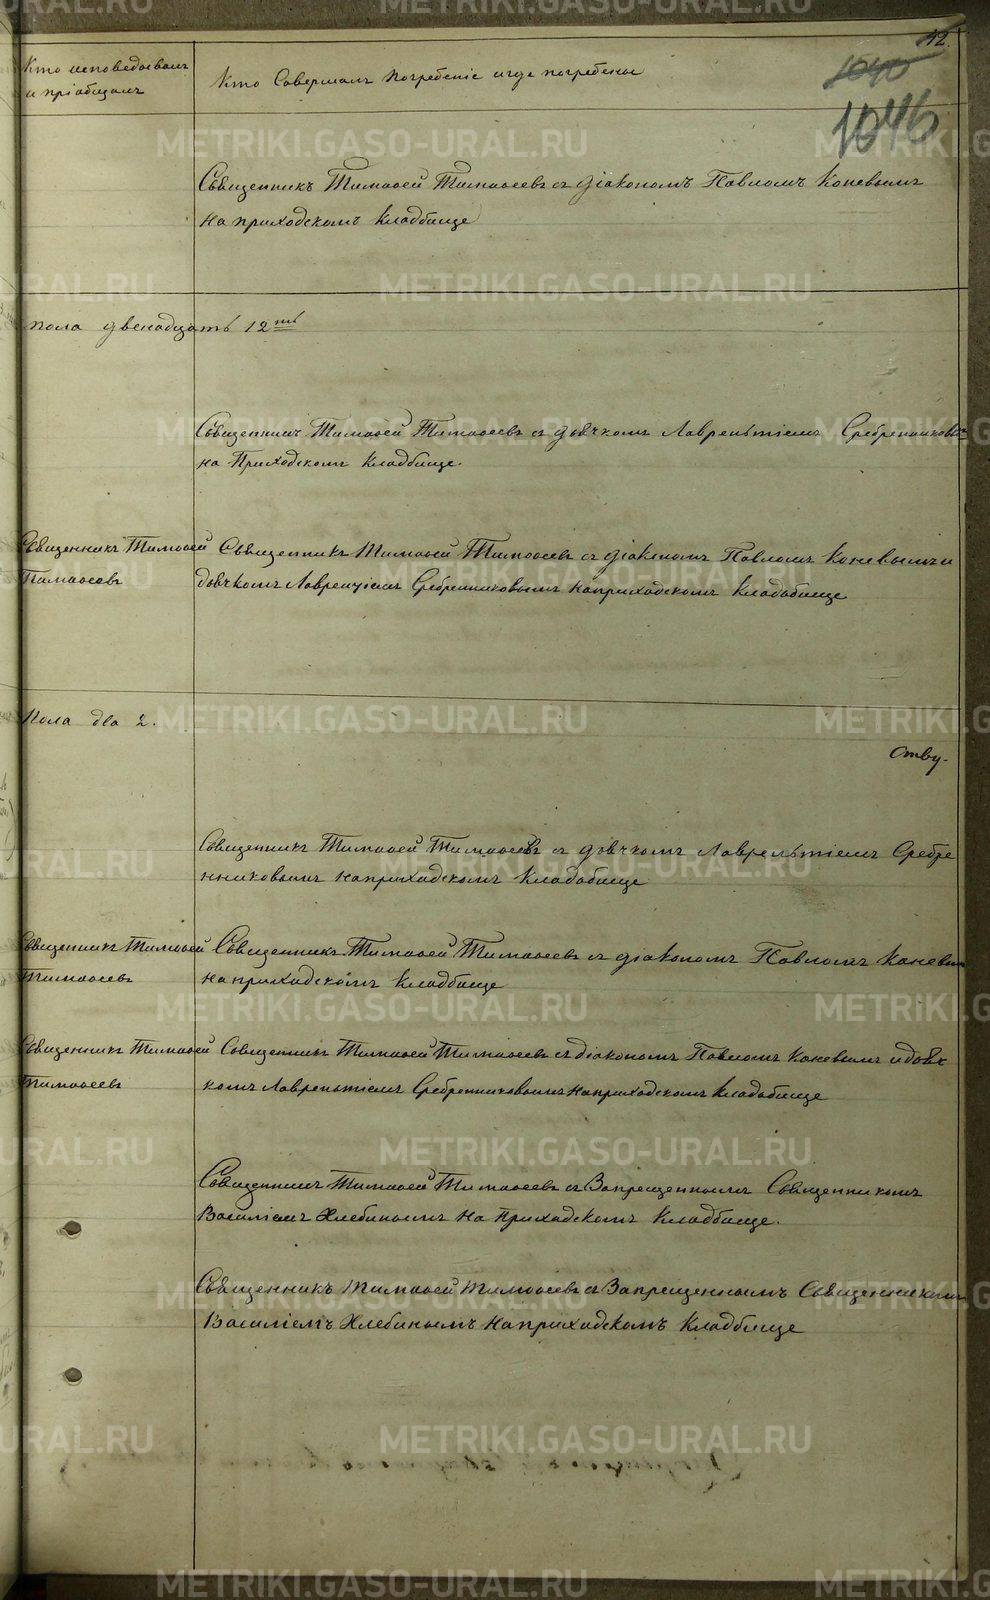 42.
1040
1046
Кто исповедовалъ
и пріобщалъ
Кто Совершалъ погребеніе и где погребены
Священникъ Тимофей Тимофеевъ съ діакономъ Павломъ Коневымъ
на приходскомъ кладбище
пола двенадцать 12ть
Священникъ Тимофей Тимофеевъ съ дьячкомъ Лаврентіемъ Сребренниковымъ
на Приходскомъ кладбище.
Священникъ Тимофей
Тимофеевъ
Священникъ Тимофей Тимофеевъ съ діакономъ Павломъ Коневымъ и
дьячкомъ Лаврентіемъ Сребренниковымъ на приходскомъ кладбище
Пола два 2.
Ству-
Священникъ Тимофей Тимофеевъ съ дьячкомъ Лаврентіемъ Сребре
нниковымъ на приходскомъ кладбище
Священникъ Тимофей
Тимофеевъ
Священникъ Тимофей Тимофеевъ съ діакономъ Павломъ Коневым
на приходскомъ кладбище
Священникъ Тимофей
Тимофеевъ
Священникъ Тимофей Тимофеевъ съ діакономъ Павломъ Коневымъ и дьяч
комъ Лаврентіемъ Сребренниковымъ на приходскомъ кладбище
Священникъ Тимофей Тимофеевъ съ Запрещеннымъ Священникомъ
Василіемъ Хлебинымъ на Приходскомъ кладбище.
Священникъ Тимофей Тимофеевъ съ Запрещеннымъ Священникомъ
Василіемъ Хлебинымъ на приходскомъ кладбище
METRIKI.GASO-URAL.RU